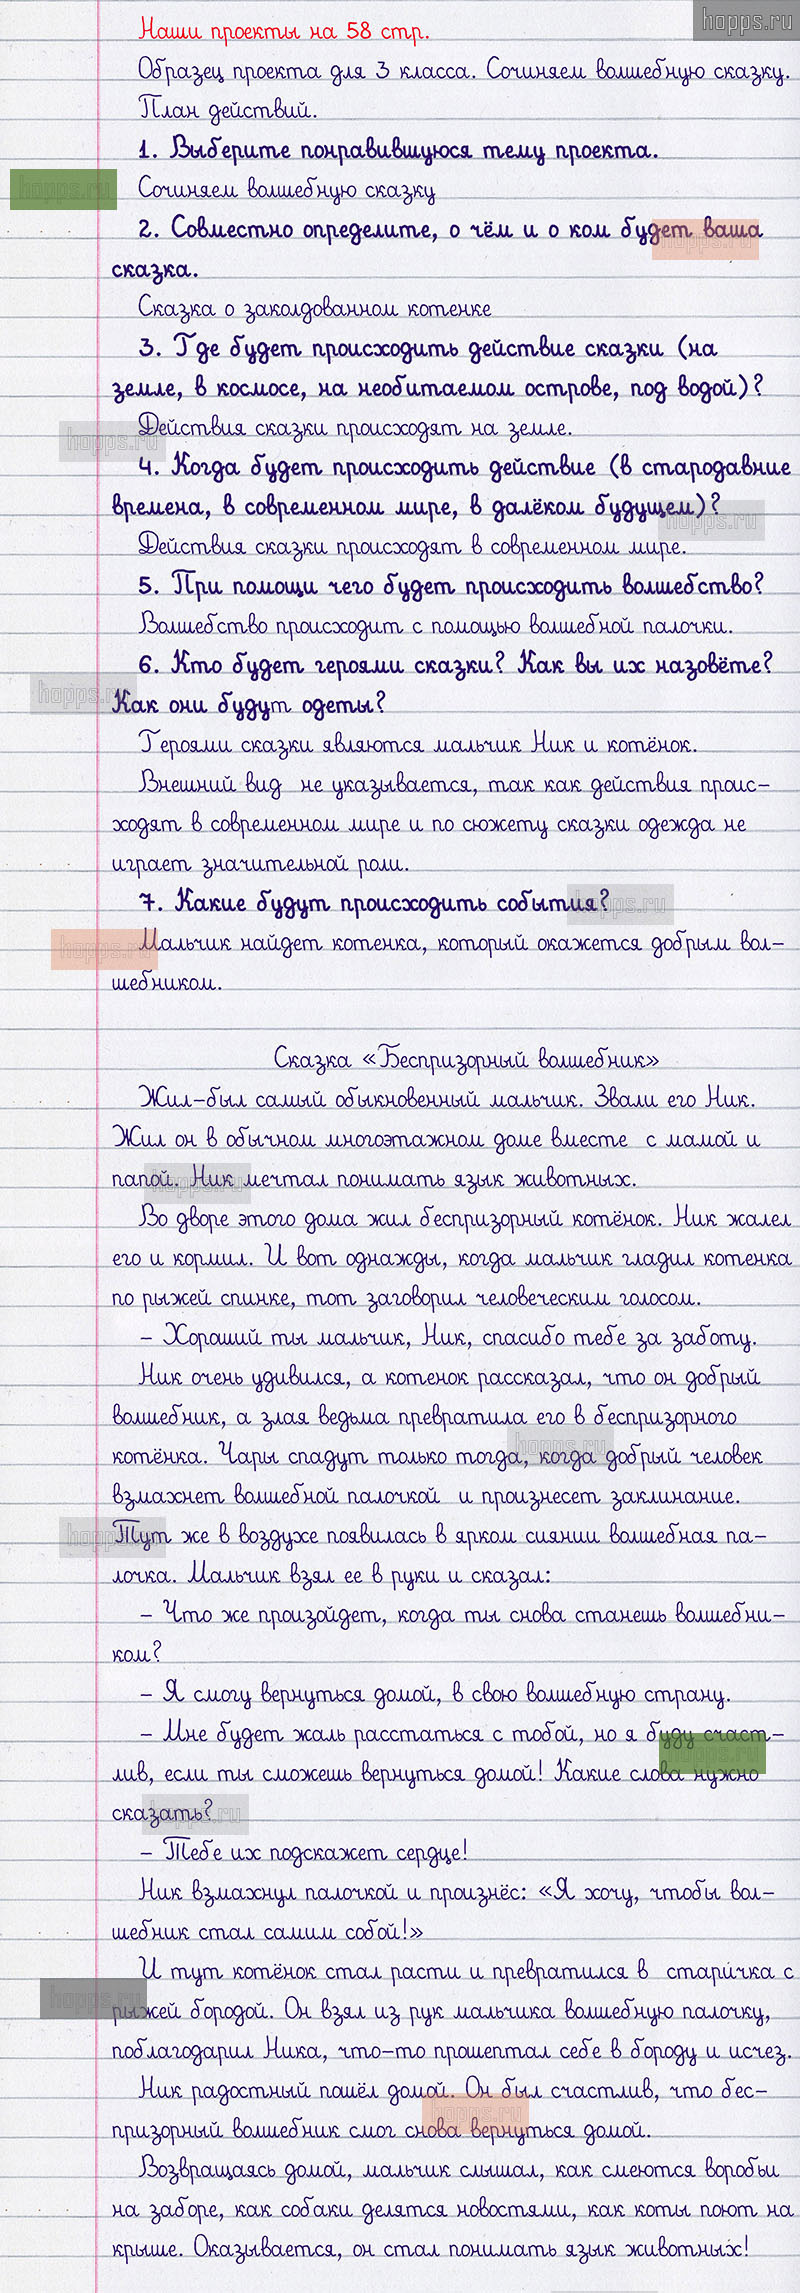 hopps.ru
Наши проекты на 58 стр.
Образец проекта для 3 класса. Сочиняем волшебную сказку.
План действий.
1. Выберите понравившуюся тему проекта.
hopps.ru
Сочиняем волшебную сказку
2. Совместно определите, о чём и о ком будет ваша
hopps.ru
сказка.
Сказка о заколдованном котенке
3. Где будет происходить действие сказки (на
земле, в космосе, на необитаемом острове, под водой)?
Действия сказки происходят на земле.
hopps.ru
4. Когда будет происходить действие (в стародавние
времена, в современном мире, в далёком будущем)?
hopps.ru
Действия сказки происходят в современном мире.
5. При помощи чего будет происходить волшебство?
Волшебство происходит с помощью волшебной палочки.
6. Кто будет героями сказки? Как вы их назовёте?
hopps.ru
Как они будут одеты?
Героями сказки являются мальчик Ник и котёнок.
Внешний вид не указывается, так как действия проис-
ходят в современном мире и по сюжету сказки одежда не
играет значительной роли.
7. Какие будут происходить события?
hopps.ru
Мальчик найдет котенка, который окажется добрым вол-
hopps.ru
шебником.
Сказка «Беспризорный волшебник»
Жил-был самый обыкновенный мальчик. Звали его Ник.
Жил он в обычном многоэтажном доме вместе с мамой и
папой. Ник мечтал понимать язык животных.
hopps.ru
Во дворе этого дома жил беспризорный котёнок. Ник жалел
его и кормил. И вот однажды, когда мальчик гладил котенка
по рыжей спинке, тот заговорил человеческим голосом.
– Хороший ты мальчик, Ник, спасибо тебе за заботу.
Ник очень удивился, а котенок рассказал, что он добрый
волшебник, а злая ведьма превратила его в беспризорного
котёнка. Чары спадут только тогда, когда добрый человек
hopps.ru
взмахнет волшебной палочкой и произнесет заклинание.
Тут же в воздухе появилась в ярком сиянии волшебная па-
hopps.ru
лочка. Мальчик взял ее в руки и сказал:
– Что же произойдет, когда ты снова станешь волшебни-
ком?
– Я смогу вернуться домой, в свою волшебную страну.
– Мне будет жаль расстаться с тобой, но я буду счаст-
hopps.ru
лив, если ты сможешь вернуться домой! Какие слова нужно
сказать?
hopps.ru
– Тебе их подскажет сердце!
Ник взмахнул палочкой и произнёс: «Я хочу, чтобы вол-
шебник стал самим собой!»
И тут котёнок стал расти и превратился в старичка с
hopps.ru
рыжей бородой. Он взял из рук мальчика волшебную палочку,
поблагодарил Ника, что-то прошептал себе в бороду и исчез.
Ник радостный пошёл домой. Он был счастлив, что бес-
hopps.ru
призорный волшебник смог снова вернуться домой.
Возвращаясь домой, мальчик слышал, как смеются воробьи
на заборе, как собаки делятся новостями, как коты поют на
крыше. Оказывается, он стал понимать язык животных!